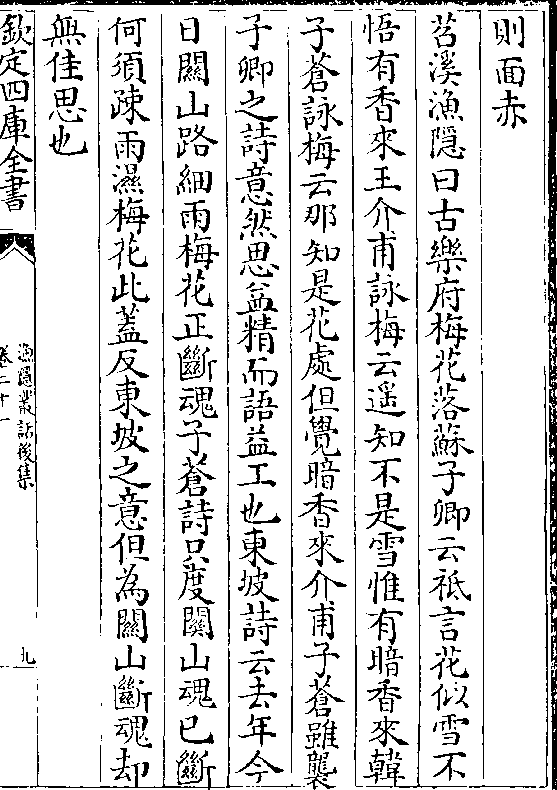 則面赤
苕溪漁隠曰古樂府梅花落蘇子卿云祗言花似雪不
悟有香來王介甫詠梅云遥知不是雪惟有暗香來韓
子蒼詠梅云那知是花處但覺暗香來介甫子蒼雖襲
子卿之詩意然思益精而語益工也東坡詩云去年今
日關山路細雨梅花正斷魂子蒼詩只度關山魂已斷
何須疎雨濕梅花此蓋反東坡之意但為關山斷魂却
無佳思也
欽定四庫全書
漁隱叢話後集
卷二十一
九